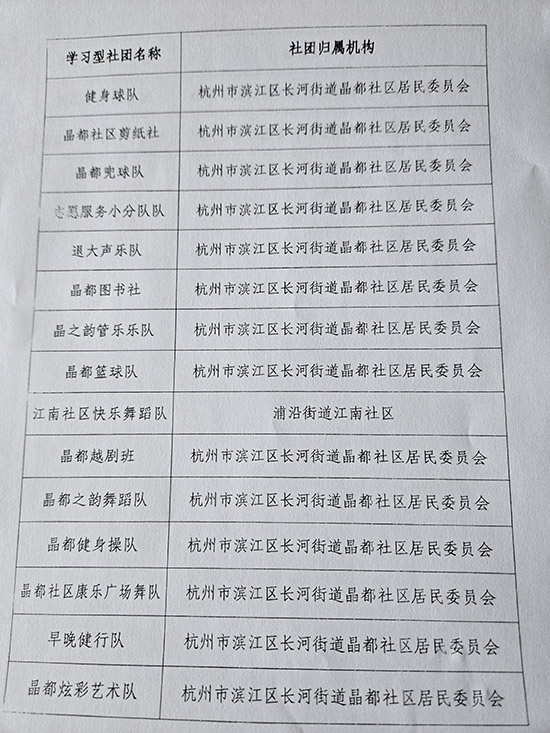 学习型社团名称 社团归属机构
健身球队 杭州市滨江区长河街道晶都社区居民委员会
晶都社区剪纸社 杭州市滨江区长河街道晶都社区居民委员会
晶都兜球队 杭州市滨江区长河街道晶都社区居民委员会
志愿服务小分队队 杭州市滨江区长河街道晶都社区居民委员会
退大声乐队 杭州市滨江区长河街道晶都社区居民委员会
晶都图书社 杭州市滨江区长河街道晶都社区居民委员会
晶之韵管乐乐队 杭州市滨江区长河街道晶都社区居民委员会
晶都篮球队 杭州市滨江区长河街道晶都社区居民委员会
江南社区快乐舞蹈队 浦沿街道江南社区
晶都越剧班 杭州市滨江区长河街道晶都社区居民委员会
晶都之韵舞蹈队 杭州市滨江区长河街道晶都社区居民委员会
晶都健身操队 杭州市滨江区长河街道晶都社区居民委员会
晶都社区康乐广场舞队 杭州市滨江区长河街道晶都社区居民委员会
早晚健行队 杭州市滨江区长河街道晶都社区居民委员会
晶都炫彩艺术队 杭州市滨江区长河街道晶都社区居民委员会